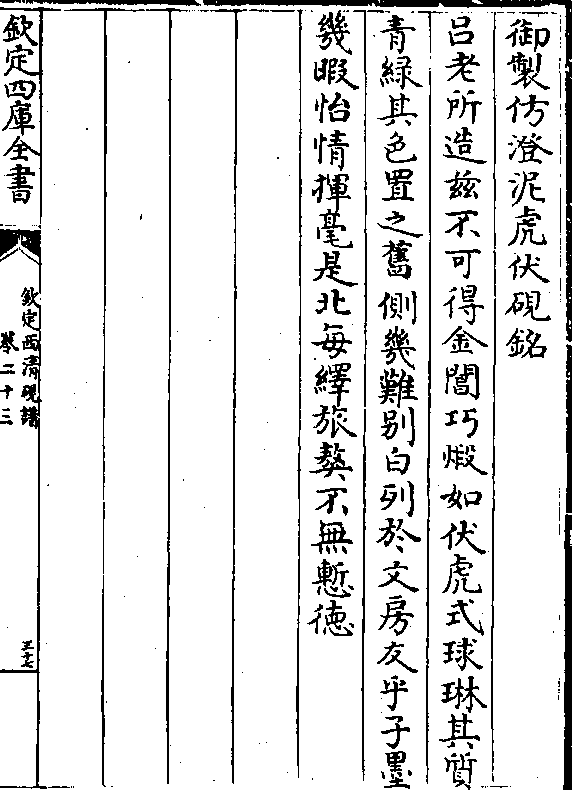 御製仿澄泥虎伏硯銘
呂老所造兹不可得金閶巧煅如伏虎式球琳其質
青緑其色置之舊側幾難别白列於文房友乎子墨
幾暇怡情揮毫是北每繹旅獒不無慙徳
欽定四庫全書
欽定西清硯譜
卷二十三